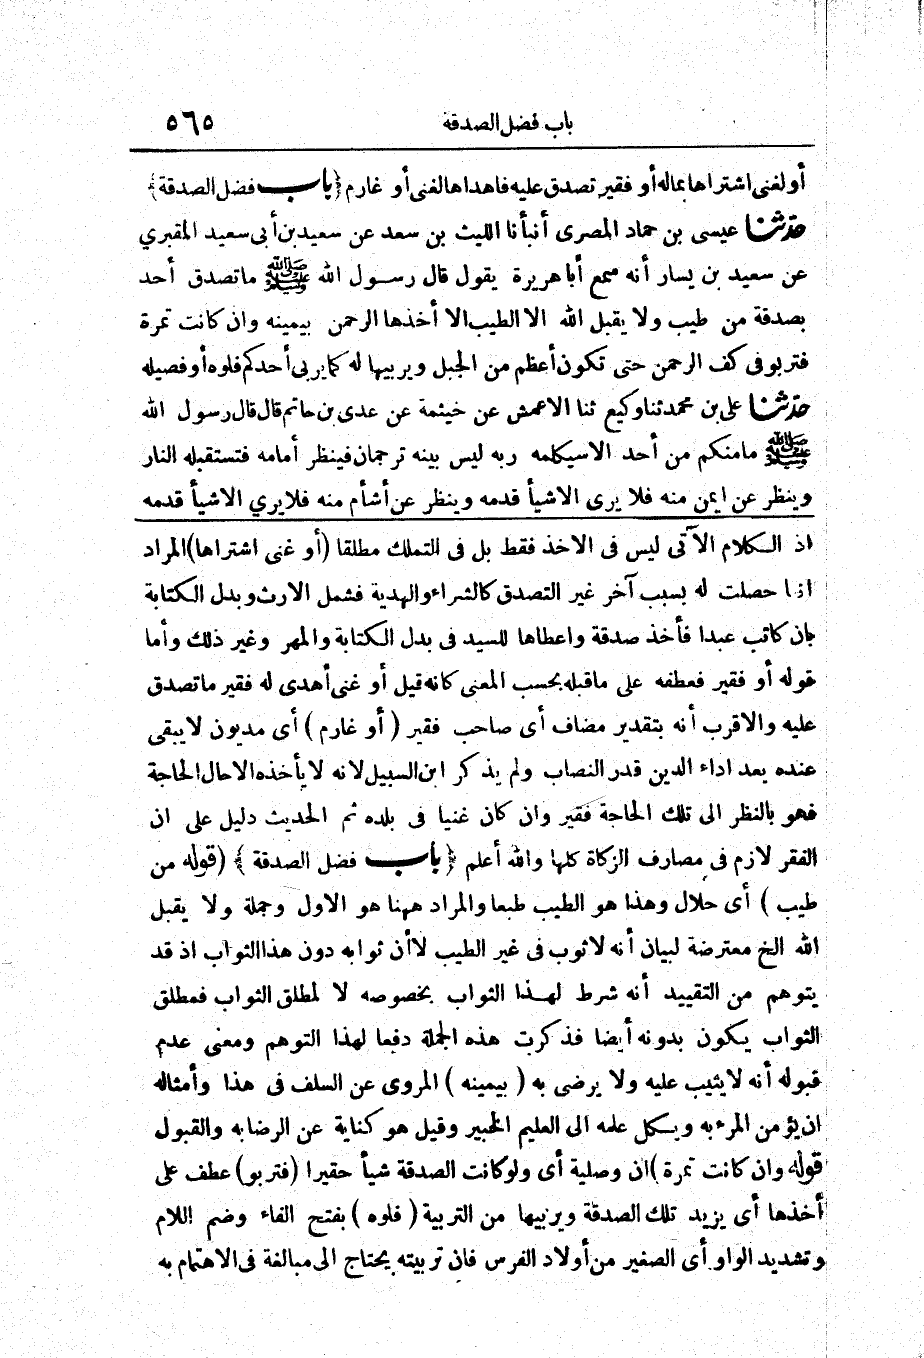 باب فضل الصدقة ٥٦٥
أو لغني اشتراها بماله أو فقير تصدق عليه فاهداها لغنى أو غارم ﴿باب فضل الصدقة﴾
حدّثنا عيسى بن حماد المصرى أنبأنا الليث بن سعد عن سعيد بن أبى سعيد المقبري
عن سعيد بن يسار أنه سمع أبا هريرة يقول قال رسول الله ﷺ ما تصدق أحد
بصدقة من طيب ولا يقبل الله الا الطيب الا أخذها الرحمن بيمينه وان كانت تمرة
فتربو فى كف الرحمن حتى تكون أعظم من الجبل ويربيها له كما يربى أحدكم فلوه أو فصيله
حدّثنا على بن محمد ثنا وكيع ثنا الاعمش عن خيثمة عن عدى بن حاتم قال قال رسول الله
ﷺ ما منكم من أحد الا سيكلمه ربه ليس بينه ترجمان فينظر أمامه فتستقبله النار
وينظر عن ايمن منه فلا يرى الا شيأ قدمه وينظر عن أشأم منه فلا يري الا شيأ قدمه
اذ الكلام الآتى ليس فى الاخذ فقط بل فى التملك مطلقا (أو غنى اشتراها) المراد
اذا حصلت له بسبب آخر غير التصدق كالشراء والهدية فشمل الارث وبدل الكتابة
بان كاتب عبدا فأخذ صدقة واعطاها للسيد فى بدل الكتابة والمهر وغير ذلك وأما
قوله أو فقير فعطفه على ما قبله بحسب المعنى كانه قيل أو غنى أهدى له فقير ما تصدق
عليه والاقرب أنه بتقدير مضاف أى صاحب فقير ( أو غارم ) أى مديون لا يبقى
عنده بعد اداء الدين قدر النصاب ولم يذكر ابن السبيل لانه لا يأخذه الا حال الحاجة
فهو بالنظر الى تلك الحاجة فقير وان كان غنيا فى بلده ثم الحديث دليل على ان
الفقر لازم فى مصارف الزكاة كلها والله أعلم ﴿ باب فضل الصدقة ﴾ (قوله من
طيب ) أى حلال وهذا هو الطيب طبعا والمراد ههنا هو الاول وجملة ولا يقبل
الله الخ معترضة لبيان أنه لا ثوب فى غير الطيب لا أن ثوابه دون هذا الثواب اذ قد
يتوهم من التقييد أنه شرط لهذا الثواب بخصوصه لا لمطلق الثواب فمطلق
الثواب يكون بدونه أيضا فذكرت هذه الجملة دفعا لهذا التوهم ومعنى عدم
قبوله أنه لا يثيب عليه ولا يرضى به ( بيمينه ) المروى عن السلف فى هذا وأمثاله
ان يؤمن المرء به ويكل علمه الى العليم الخبير وقيل هو كناية عن الرضا به والقبول
قوله وان كانت تمرة )ان وصلية أى ولو كانت الصدقة شيأ حقيرا (فتربو) عطف على
أخذها أى يزيد تلك الصدقة ويربيها من التربية ( فلوه ) بفتح الفاء وضم اللام
وتشديد الواو أى الصغير من أولاد الفرس فان تربيته يحتاج الى مبالغة فى الاهتمام به